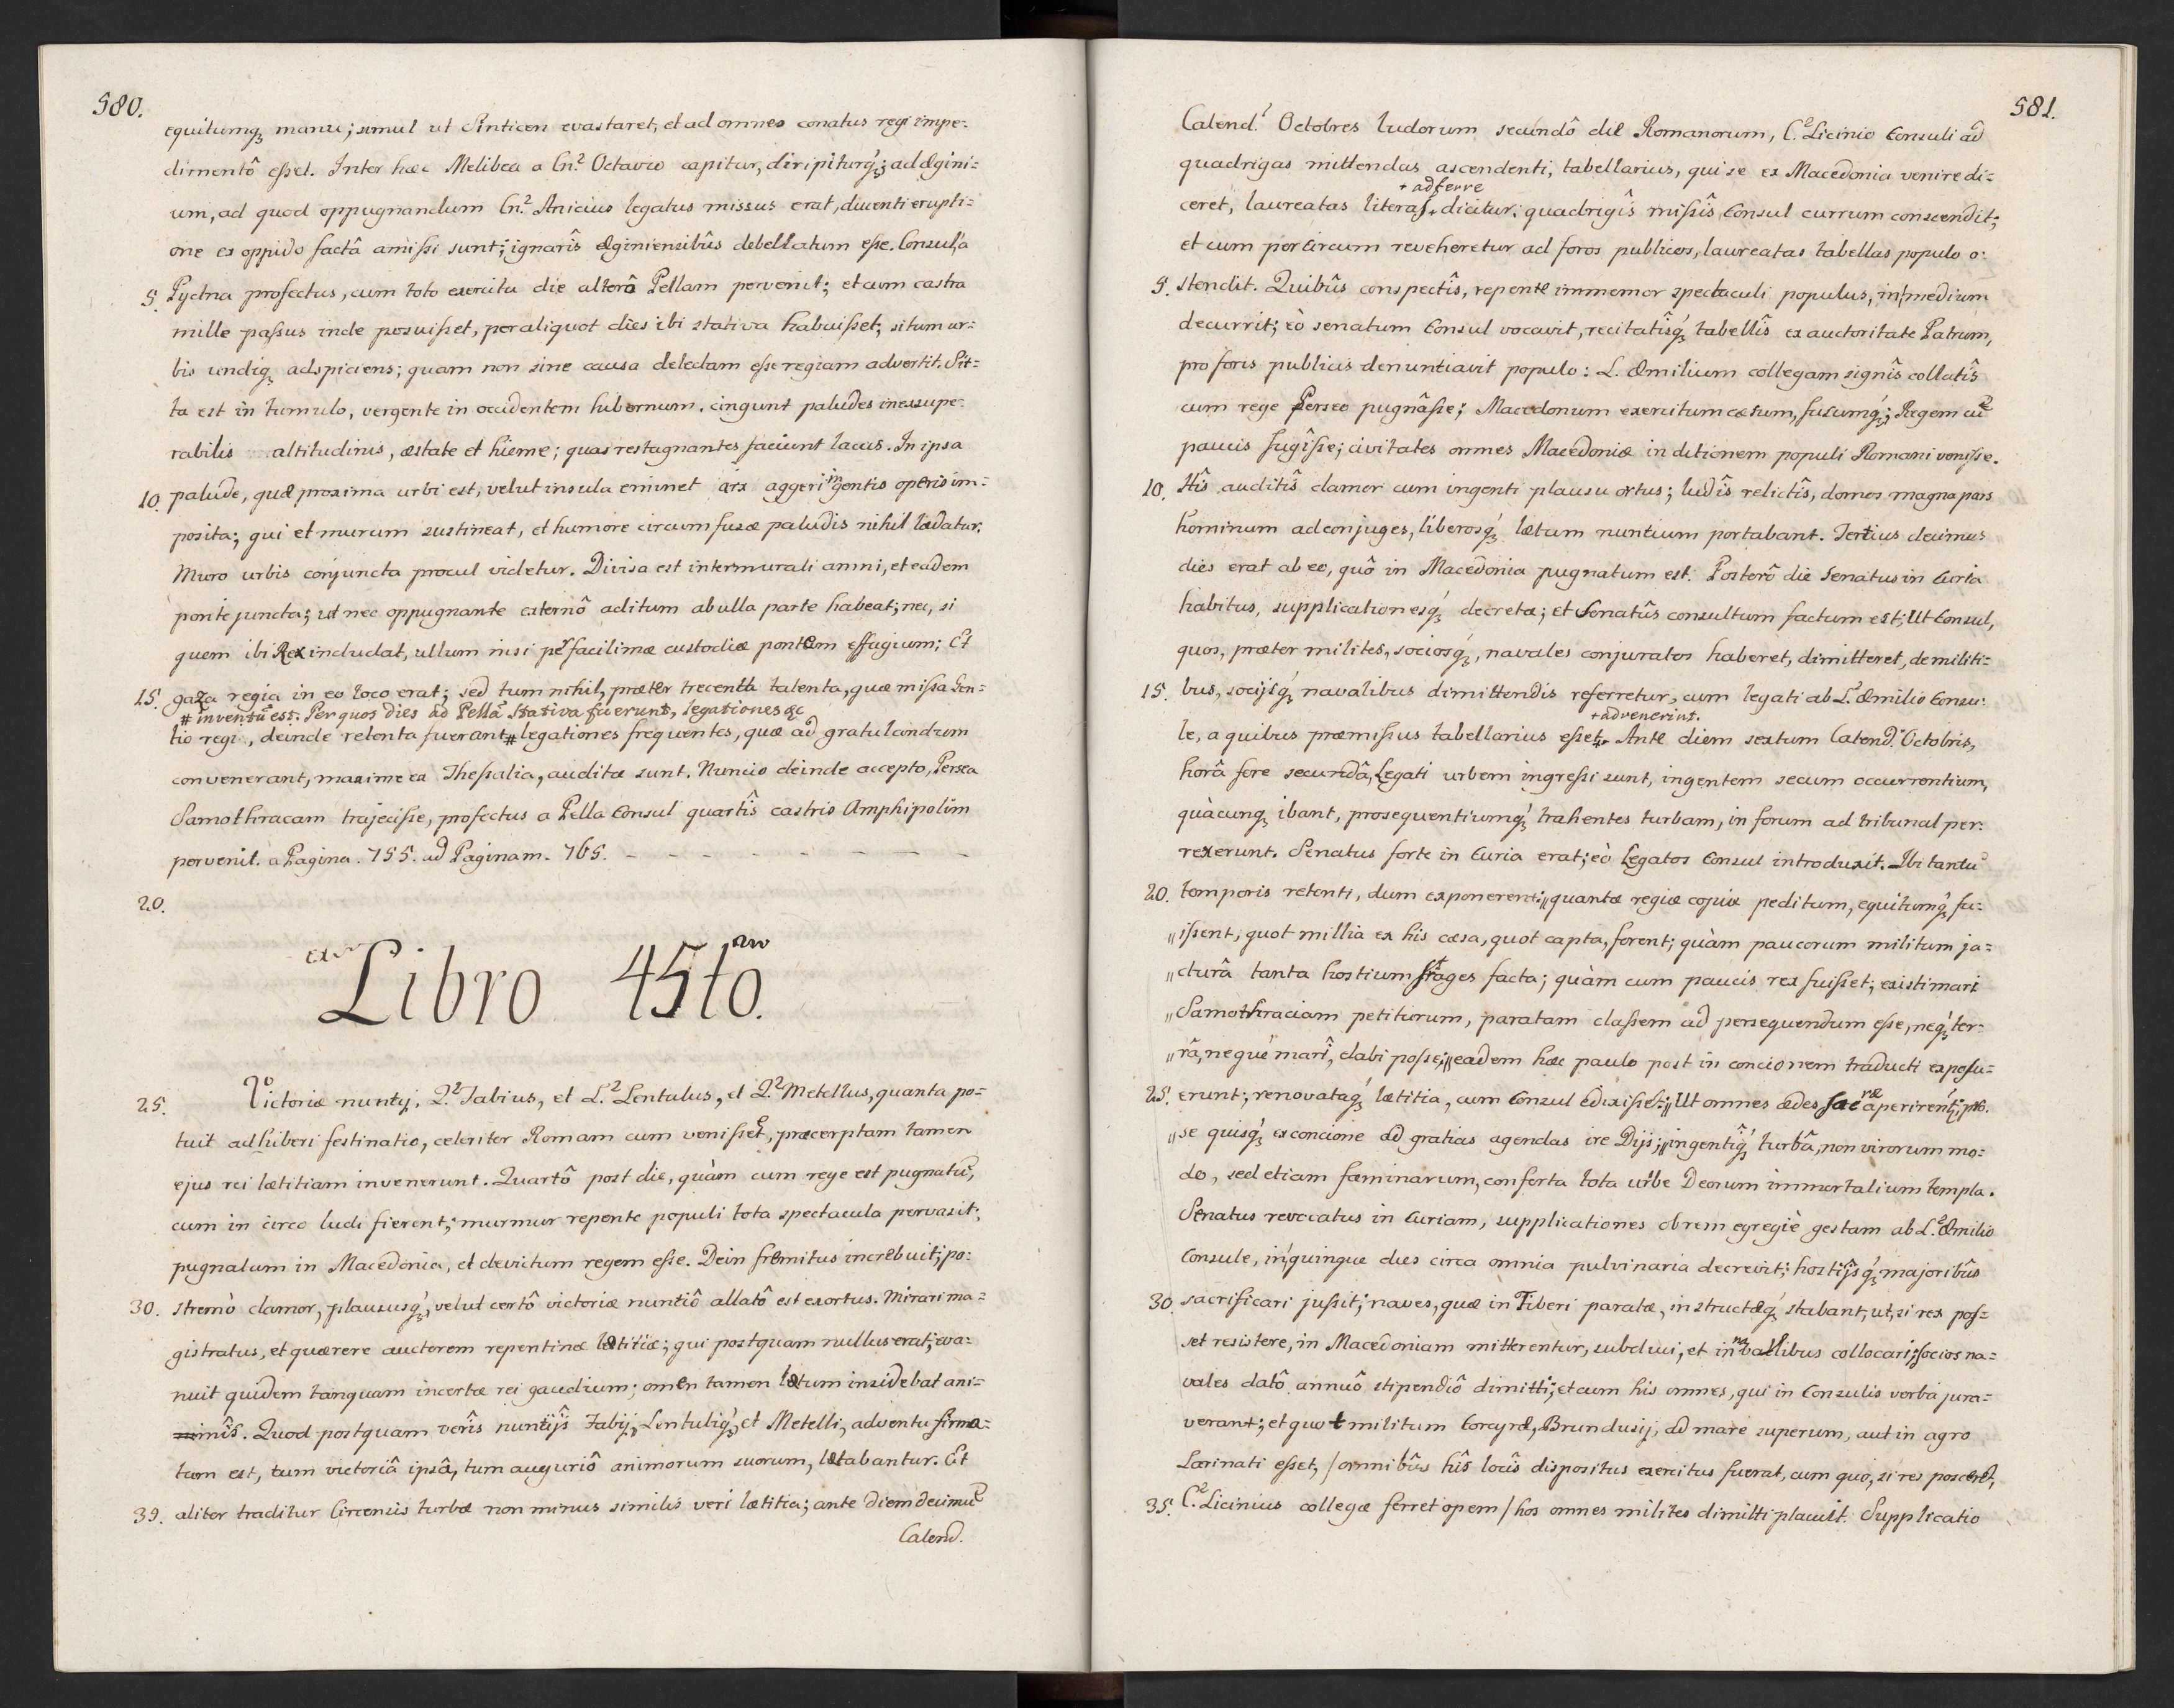 580.
equitumq₃ manu; simul ut Sinticen evastaret, et ad omnes conatus regi impe-
dimentô esset. Inter hæc Melibea a Cn.² Octavio capitur, diripiturq́₃; ad Ægini-
um, ad quod oppugnandum Cn.² Anicius legatus missus erat, ducenti erupti-
one ex oppido factâ amissi sunt; ignarîs Æginiensibûs debellatum esse. Consul, a
5. Pydna profectus, cum toto exercitu die alterô Pellam pervenit; et cum castra
mille passus inde posuisset, per aliquot dies ibi stativa habuisset; situm ur=
bis undiq₃ adspiciens; quam non sine causa delectam esse regiam advertit. Sit=
ta est in tumulo, vergente in occidentem hibernum. cingunt paludes inexsupe-
rabilis altitudinis, æstate et hieme; quas restagnantes faciunt lacus. In ipsa
10. palude, quæ proxima urbi est, velut insula eminet arx aggeri ingentis operis im=
posita; qui et murum sustineat, et humore circumfusæ paludis nihil lædatur.
Muro urbis conjuncta procul videtur. Divisa est intermurali amni, et eadem
ponte juncta; ut nec oppugnante externô aditum ab ulla parte habeat; nec, si
quem ibi Rex includat, ullum nisi per facilimæ custodiæ pontem effugium; Et
15. gaza regia in eo loco erat; sed tum nihil, præter trecenta talenta, quæ missa Gen=
# inventũ est. Per quos dies ad Pellã Stativa fuerunt, legationes &c
tio regi, deinde retenta fuerant # legationes frequentes, quæ ad gratulandum
convenerant, maxime ex Thessalia, auditæ sunt. Nuncio deinde accepto, Persea
Samothracam trajecisse, profectus a Pella Consul quartîs castris Amphipolim
pervenit. a Pagina. 755. ad Paginam. 765. - - - - - - - - -
20.
ex Libro 45to.
25. Victoriæ nuntij, Q.² Fabius, et L.² Lentulus, et Q.² Metellus, quanta po=
tuit adhiberi festinatio, celeriter Romam cum venisset, præcerptam tamen
ejus rei lætitiam invenerunt. Quartô post die, quàm cum rege est pugnatũ,
cum in circo ludi fierent; murmur repente populi tota spectacula pervasit;
pugnatum in Macedonia, et devictum regem esse. Dein fremitus increbuit; po-
30. stremò clamor, plaususq́₃, velut certô victoriæ nuntiô allatô est exortus. Mirari ma=
gistratus, et quærere auctorem repentinæ lætitiæ; qui postquam nullus erat; eva-
nuit quidem tanquam incertæ rei gaudium; omen tamen lætum insidebat ani=
mîs. Quod postquam verîs nuntijs Fabij, Lentuliq́₃, et Metelli, adventu firma=
tum est, tum victoriâ ipsâ, tum auguriô animorum suorum, lætabantur. Et
39. aliter traditur Circensis turbæ non minus similis veri lætitia; ante diem decimũ
Calend.
581.
Calend.² Octobres ludorum secundô die Romanorum, C.² Licinio Consuli ad
quadrigas mittendas ascendenti, tabellarius, qui se ex Macedonia venire di=
+ adferre
ceret, laureatas literas + dicitur. quadrigîs missîs Consul currum conscendit;
et cum per circum reveheretur ad foros publicos, laureatas tabellas populo o-
5. stendit. Quibûs conspectîs, repente immemor spectaculi populus, in medium
decurrit; eò senatum Consul vocavit, recitatîsq́₃ tabellîs ex auctoritate Patrum,
pro foris publicis denuntiavit populo: L. Æmilium collegam signîs collatîs
cum rege Perseo pugnâsse; Macedonum exercitum cæsum, fusumq́₃; Regem cũ
paucis fugîsse; civitates omnes Macedoniæ in ditionem populi Romani venisse.
10. Hîs auditîs clamor cum ingenti plausu ortus; ludîs relictîs, domos magna pars
hominum ad conjuges, liberosq́₃ lætum nuntium portabant. Tertius decimus
dies erat ab eo, quô in Macedonia pugnatum est. Posterô die Senatus in Curia
habitus, supplicationesq́₃ decretæ; et Senatûs consultum factum est; Ut Consul,
quos, præter milites, sociosq́₃, navales conjuratos haberet, dimitteret, de militi=
15. bus, socijsq́₃ navalibus dimittendis referretur, cum legati ab L.² Æmilio Consu-
+ advenerint.
le, a quibus præmissus tabellarius esset +. Ante diem sextum Calend.² Octobris,
horâ fere secundâ, Legati urbem ingressi sunt, ingentem secum occurrentium,
quàcunq₃ ibant, prosequentiumq́₃ trahentes turbam, in forum ad tribunal per-
rexerunt. Senatus forte in Curia erat; eò Legatos Consul introduxit. Ibi tantũ
20. temporis retenti, dum exponerent: „quantæ regiæ copiæ peditum, equitumq́₃ fu-
„issent; quot millia ex his cæsa, quot capta, forent; quàm paucorum militum ja=
„cturâ tanta hostium strages facta; quàm cum paucis rex fuisset; existimari
„Samothraciam petiturum, paratam classem ad persequendum esse, neq́₃ ter-
„râ, neque marî, elabi posse; „eadem hæc paulo post in concionem traducti exposu=
25. erunt; renovataq́₃ lætitia, cum Consul edixisset: „Ut omnes ædes sacræ aperirent; pro.
„se quisq́₃ ex concione ad gratias agendas ire Dijs; „ingentîq́₃ turbâ, non virorum mo-
do, sed etiam fœminarum, conferta tota urbe Deorum immortalium templa.
Senatus revocatus in Curiam, supplicationes ob rem egregiè gestam ab L.² Æmilio
Consule, in quinque dies circa omnia pulvinaria decrevit; hostijsq́₃ majoribûs
30. sacrificari jussit; naves, quæ in Tiberi paratæ, instructæq́₃ stabant, ut, si rex pos=
set resistere, in Macedoniam mitterentur, subduci, et in navalibus collocari; socios na=
vales datô annuô stipendiô dimitti; et cum his omnes, qui in Consulis verba jura-
verant; et quot militum Corcyræ, Brundusij, ad mare superum, aut in agro
Larinati esset, /omnibûs hîs locîs dispositus exercitus fuerat, cum quo, si res posceret,
35. C.² Licinius collegæ ferret opem/ hos omnes milites dimitti placuit. Supplicatio